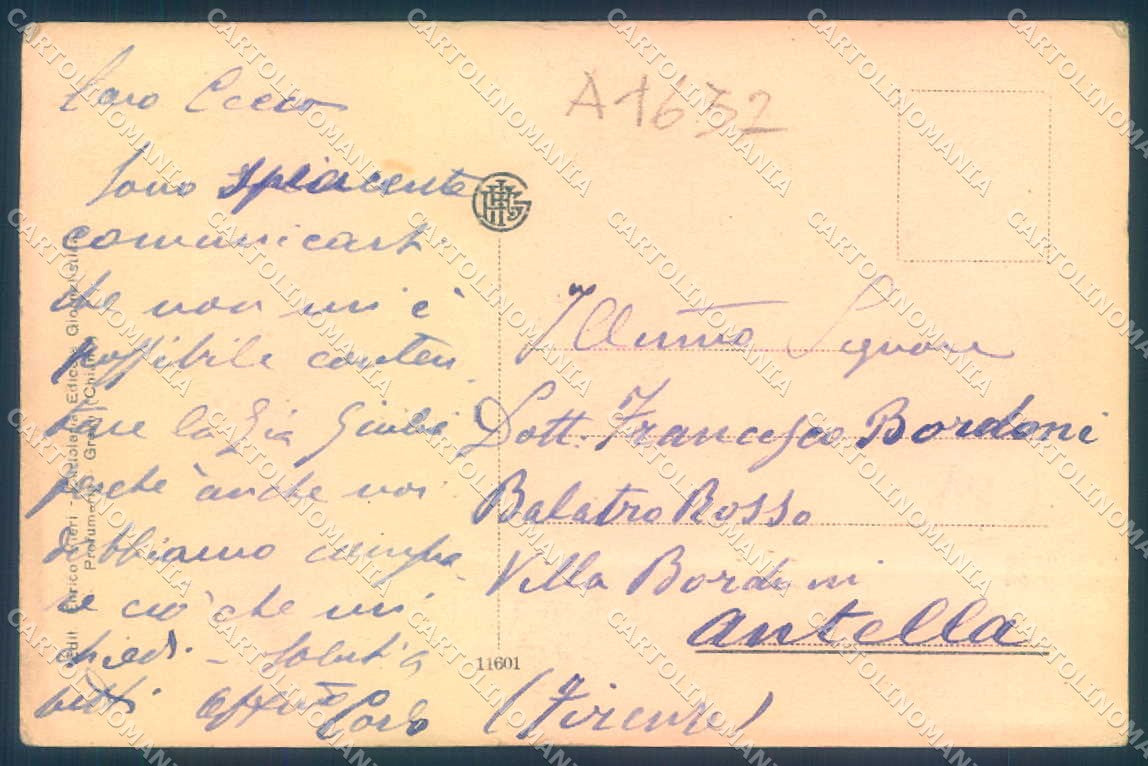 Caro Cecco
Sono spiacente
comunicarti
che non mi è
possibile conten
tare la Zia Giulia
perché anche noi
dobbiamo compra
re ciò che mi
chiedi - Saluti a
tutti affmo Carlo
A1632
Signore
Dott. Francesco Bordoni
Balatro Rosso
Villa Bordoni
Antella
(Firenze)
11601
Edit. Enrico - Edicola Giornalistica
Profumeria - Greve (Chianti)
CARTOLINOMANIA